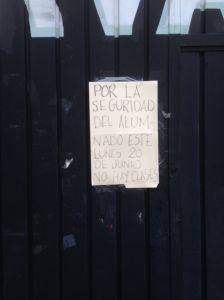 POR LA
SEGURIDAD
DEL ALUM-
NADO ESTE
LUNES 20
DE JUNIO
NO HAY CLASES